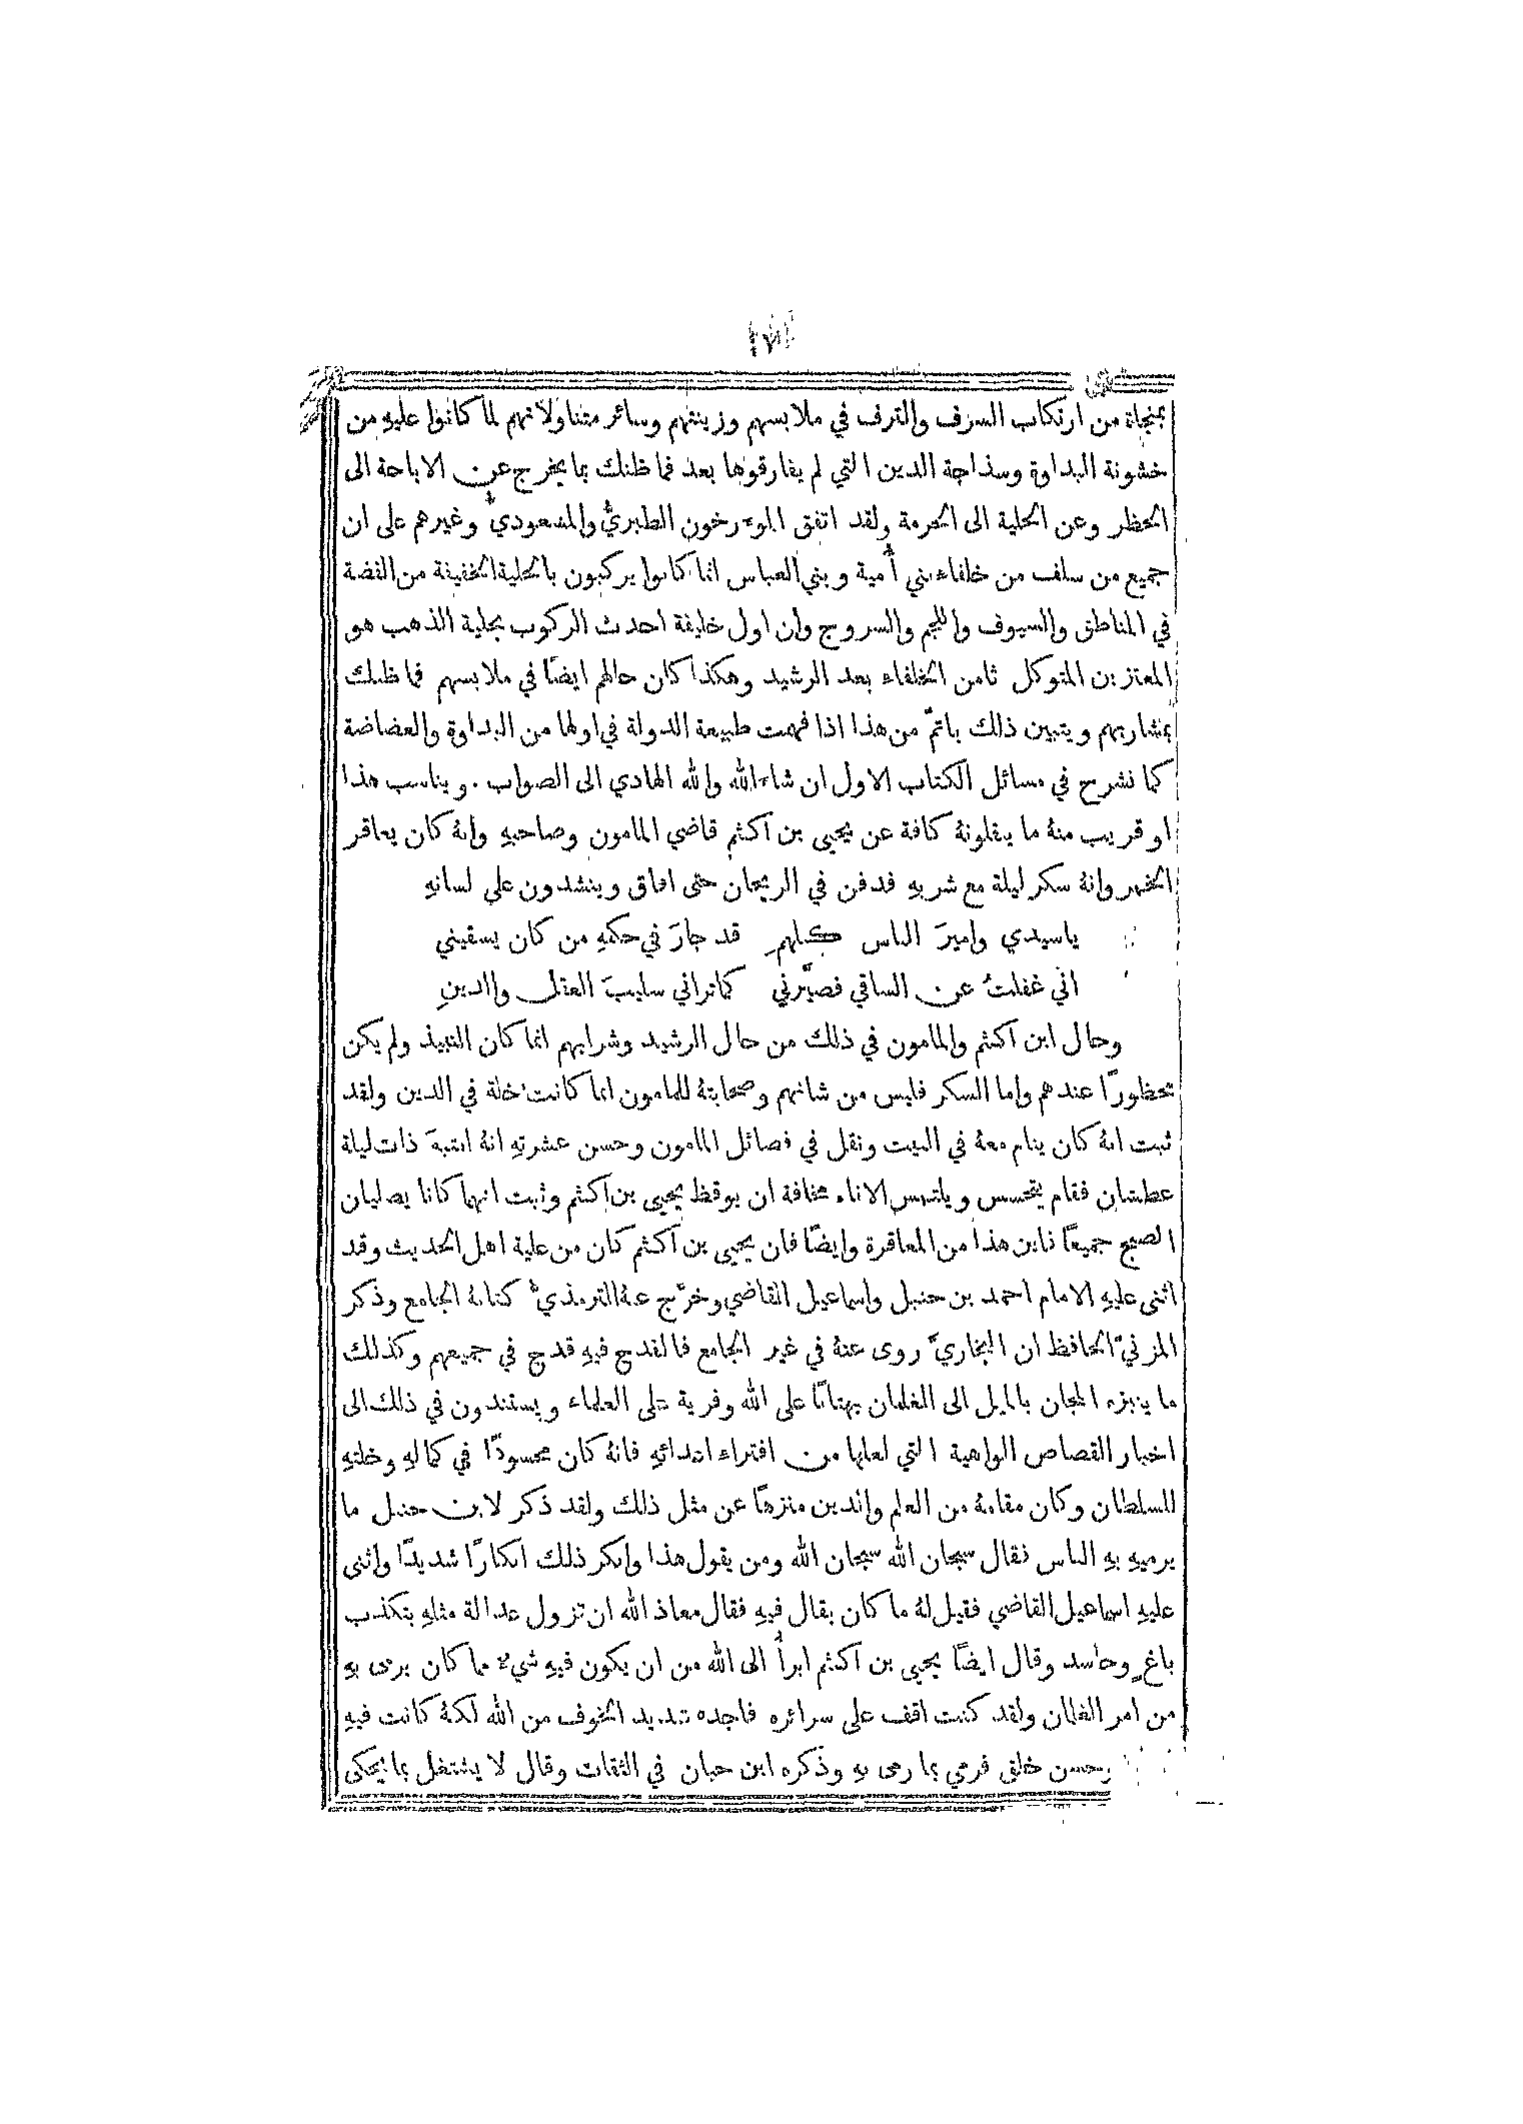 بمنجاة من ارتكاب السرف والترف في ملابسهم وزينتهم وسائر متناولاتهم لما كانوا عليهِ من
خشونة البداوة وسذاجة الدين التي لم يفارقوها بعد فما ظنك بما يخرج عن الاباحة الى
الحظر وعن الحلية الى الحرمة ولقد اتفق المؤرخون الطبريُّ والمسعوديُّ وغيرهم على ان
جميع من سلف من خلفاء بني أُمية وبني العباس انما كانوا يركبون بالحلية الخفيفة من الفضة
في المناطق والسيوف واللجم والسروج وان اول خليفة احدث الركوب بحلية الذهب هو
المعتز بن المتوكل ثامن الخلفاء بعد الرشيد وهكذا كان حالهم ايضًا في ملابسهم فما ظنك
بمشاربهم ويتبين ذلك باتمّ من هذا اذا فهمت طبيعة الدولة في اولها من البداوة والغضاضة
كما نشرح في مسائل الكتاب الاول ان شاء الله والله الهادي الى الصواب . ويناسب هذا
او قريب منهُ ما ينقلونهُ كافة عن يحيى بن اكثم قاضي المامون وصاحبهِ وانهُ كان يعاقر
الخمر وانهُ سكر ليلة مع شربهِ فدفن في الريحان حتى افاق وينشدون على لسانهِ
ياسيدي واميرَ الناس كلهمِ قد جارَ في حكمهِ من كان يسقيني
اني غفلتُ عن الساقي فصيَّرني كما تراني سليبَ العقل والدينِ
وحال ابن اكثم والمامون في ذلك من حال الرشيد وشرابهم انما كان النبيذ ولم يكن
محظورًا عندهم واما السكر فليس من شانهم وصحابتهُ للمامون انما كانت خلة في الدين ولقد
ثبت انهُ كان ينام معهُ في البيت ونقل في فضائل المامون وحسن عشرتهِ انهُ انتبهَ ذات ليلة
عطشان فقام يتحسس ويلتمس الاناء مخافة ان يوقظ يحيى بن اكثم وثبت انهما كانا يصليان
الصبح جميعًا فاين هذا من المعاقرة وايضًا فان يحيى بن اكثم كان من علية اهل الحديث وقد
اثنى عليهِ الامام احمد بن حنبل واسماعيل القاضي وخرّج عنهُ الترمذيُّ كتابهُ الجامع وذكر
المزنيّ الحافظ ان البخاريَّ روى عنهُ في غير الجامع فالقدح فيهِ قدح في جميعهم وكذلك
ما ينبزه المجان بالميل الى الغلمان بهتانًا على الله وفرية على العلماء ويستندون في ذلك الى
اخبار القصاص الواهية التي لعلها من افتراء اعدائهِ فانهُ كان محسودًا في كمالهِ وخلتهِ
للسلطان وكان مقامهُ من العلم والدين منزهًا عن مثل ذلك ولقد ذكر لابن حنبل ما
يرميهِ بهِ الناس فقال سبحان الله سبحان الله ومن يقول هذا وانكر ذلك انكارًا شديدًا واثنى
عليهِ اسماعيل القاضي فقيل لهُ ما كان يقال فيهِ فقال معاذ الله ان تزول عدالة مثلهِ بتكذب
باغٍ وحاسد وقال ايضًا يحيى بن اكثم ابرأُ الى الله من ان يكون فيهِ شيء مما كان يرمى بهِ
من امر الغلمان ولقد كنت اقف على سرائره فاجده شديد الخوف من الله لكنهُ كانت فيهِ
وحسن خلق فرمي بما رمى بهِ وذكره ابن حبان في الثقات وقال لا يشتغل بما يحكى